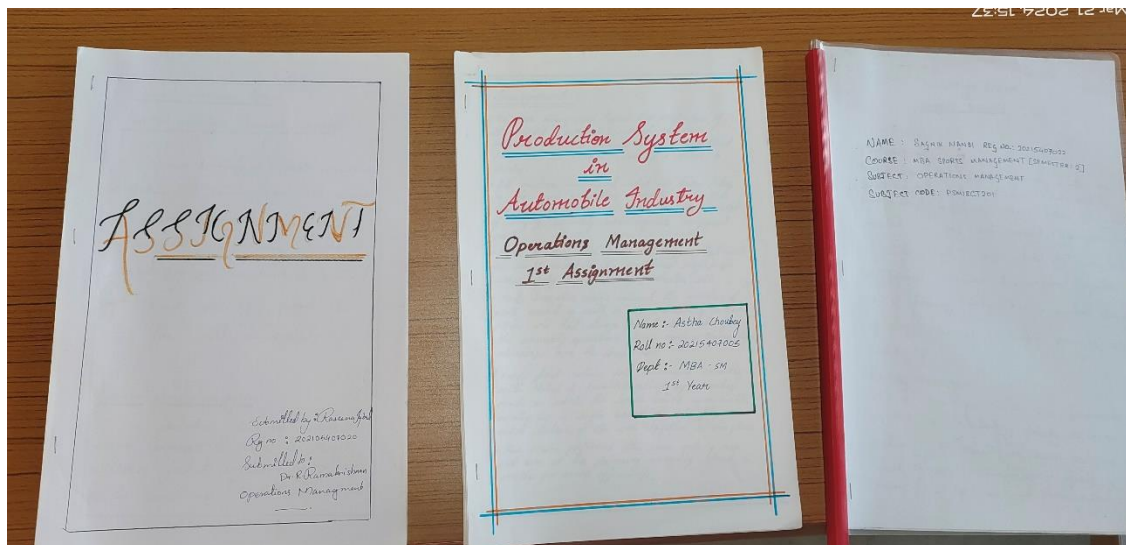 Mar 21 2024, 15:37
ASSIGNMENT
Submitted by :
Reg no : 20215407020
Submitted to :
Dr R. Ramakrishnan
Operations Managment
Production System
in
Automobile Industry
Operations Management
1st Assignment
Name :- Astha Choubey
Roll no :- 20215407005
Dept :- MBA - SM
1st Year
NAME : SAGNIK NANDI REG NO.: 20215407022
COURSE : MBA SPORTS MANAGEMENT
SUBJECT : OPERATIONS MANAGEMENT
SUBJECT CODE: